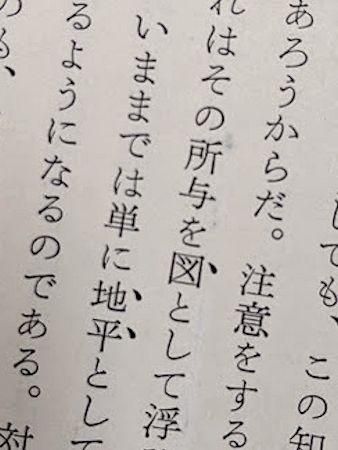 しても、この知
あろうからだ。注意をする
れはその所与を図として浮
いままでは単に地平として
るようになるのである。対
のも、